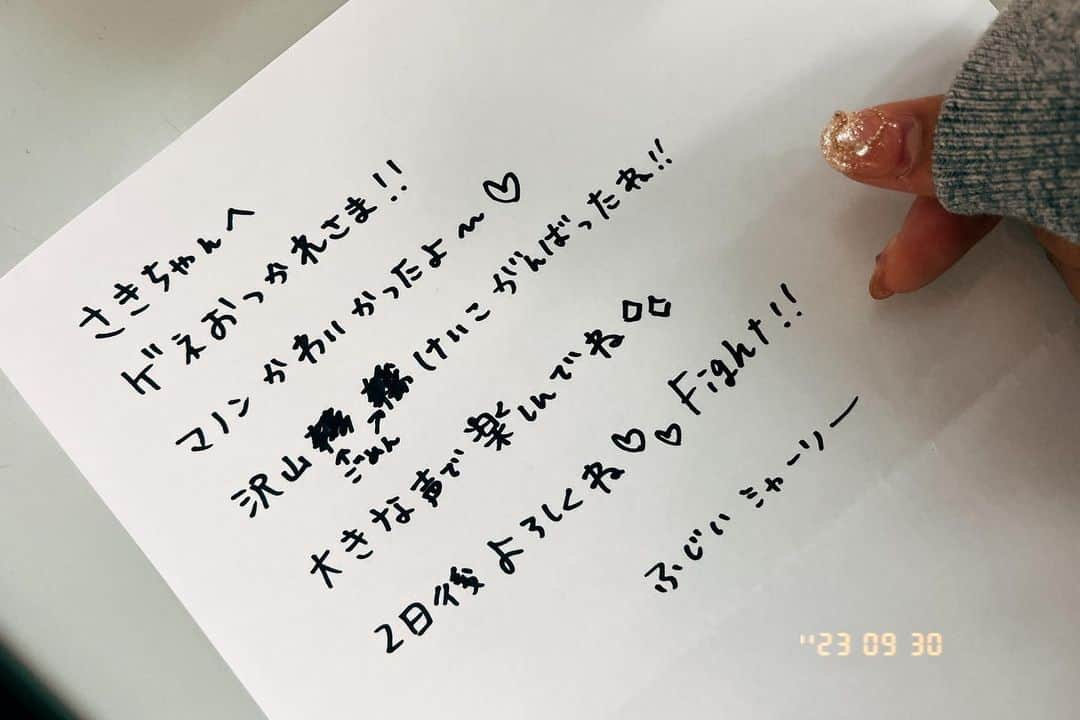 さきちゃんへ
ゲネおっかれさま!!
マノンかわいかったよ〜♡
沢山 けいこがんばったね!!
↑ごめん↗
大きな声で楽しんでね
2日後よろしくね♡♡ Fight!!
ふじいシャーリー
"23 09 30